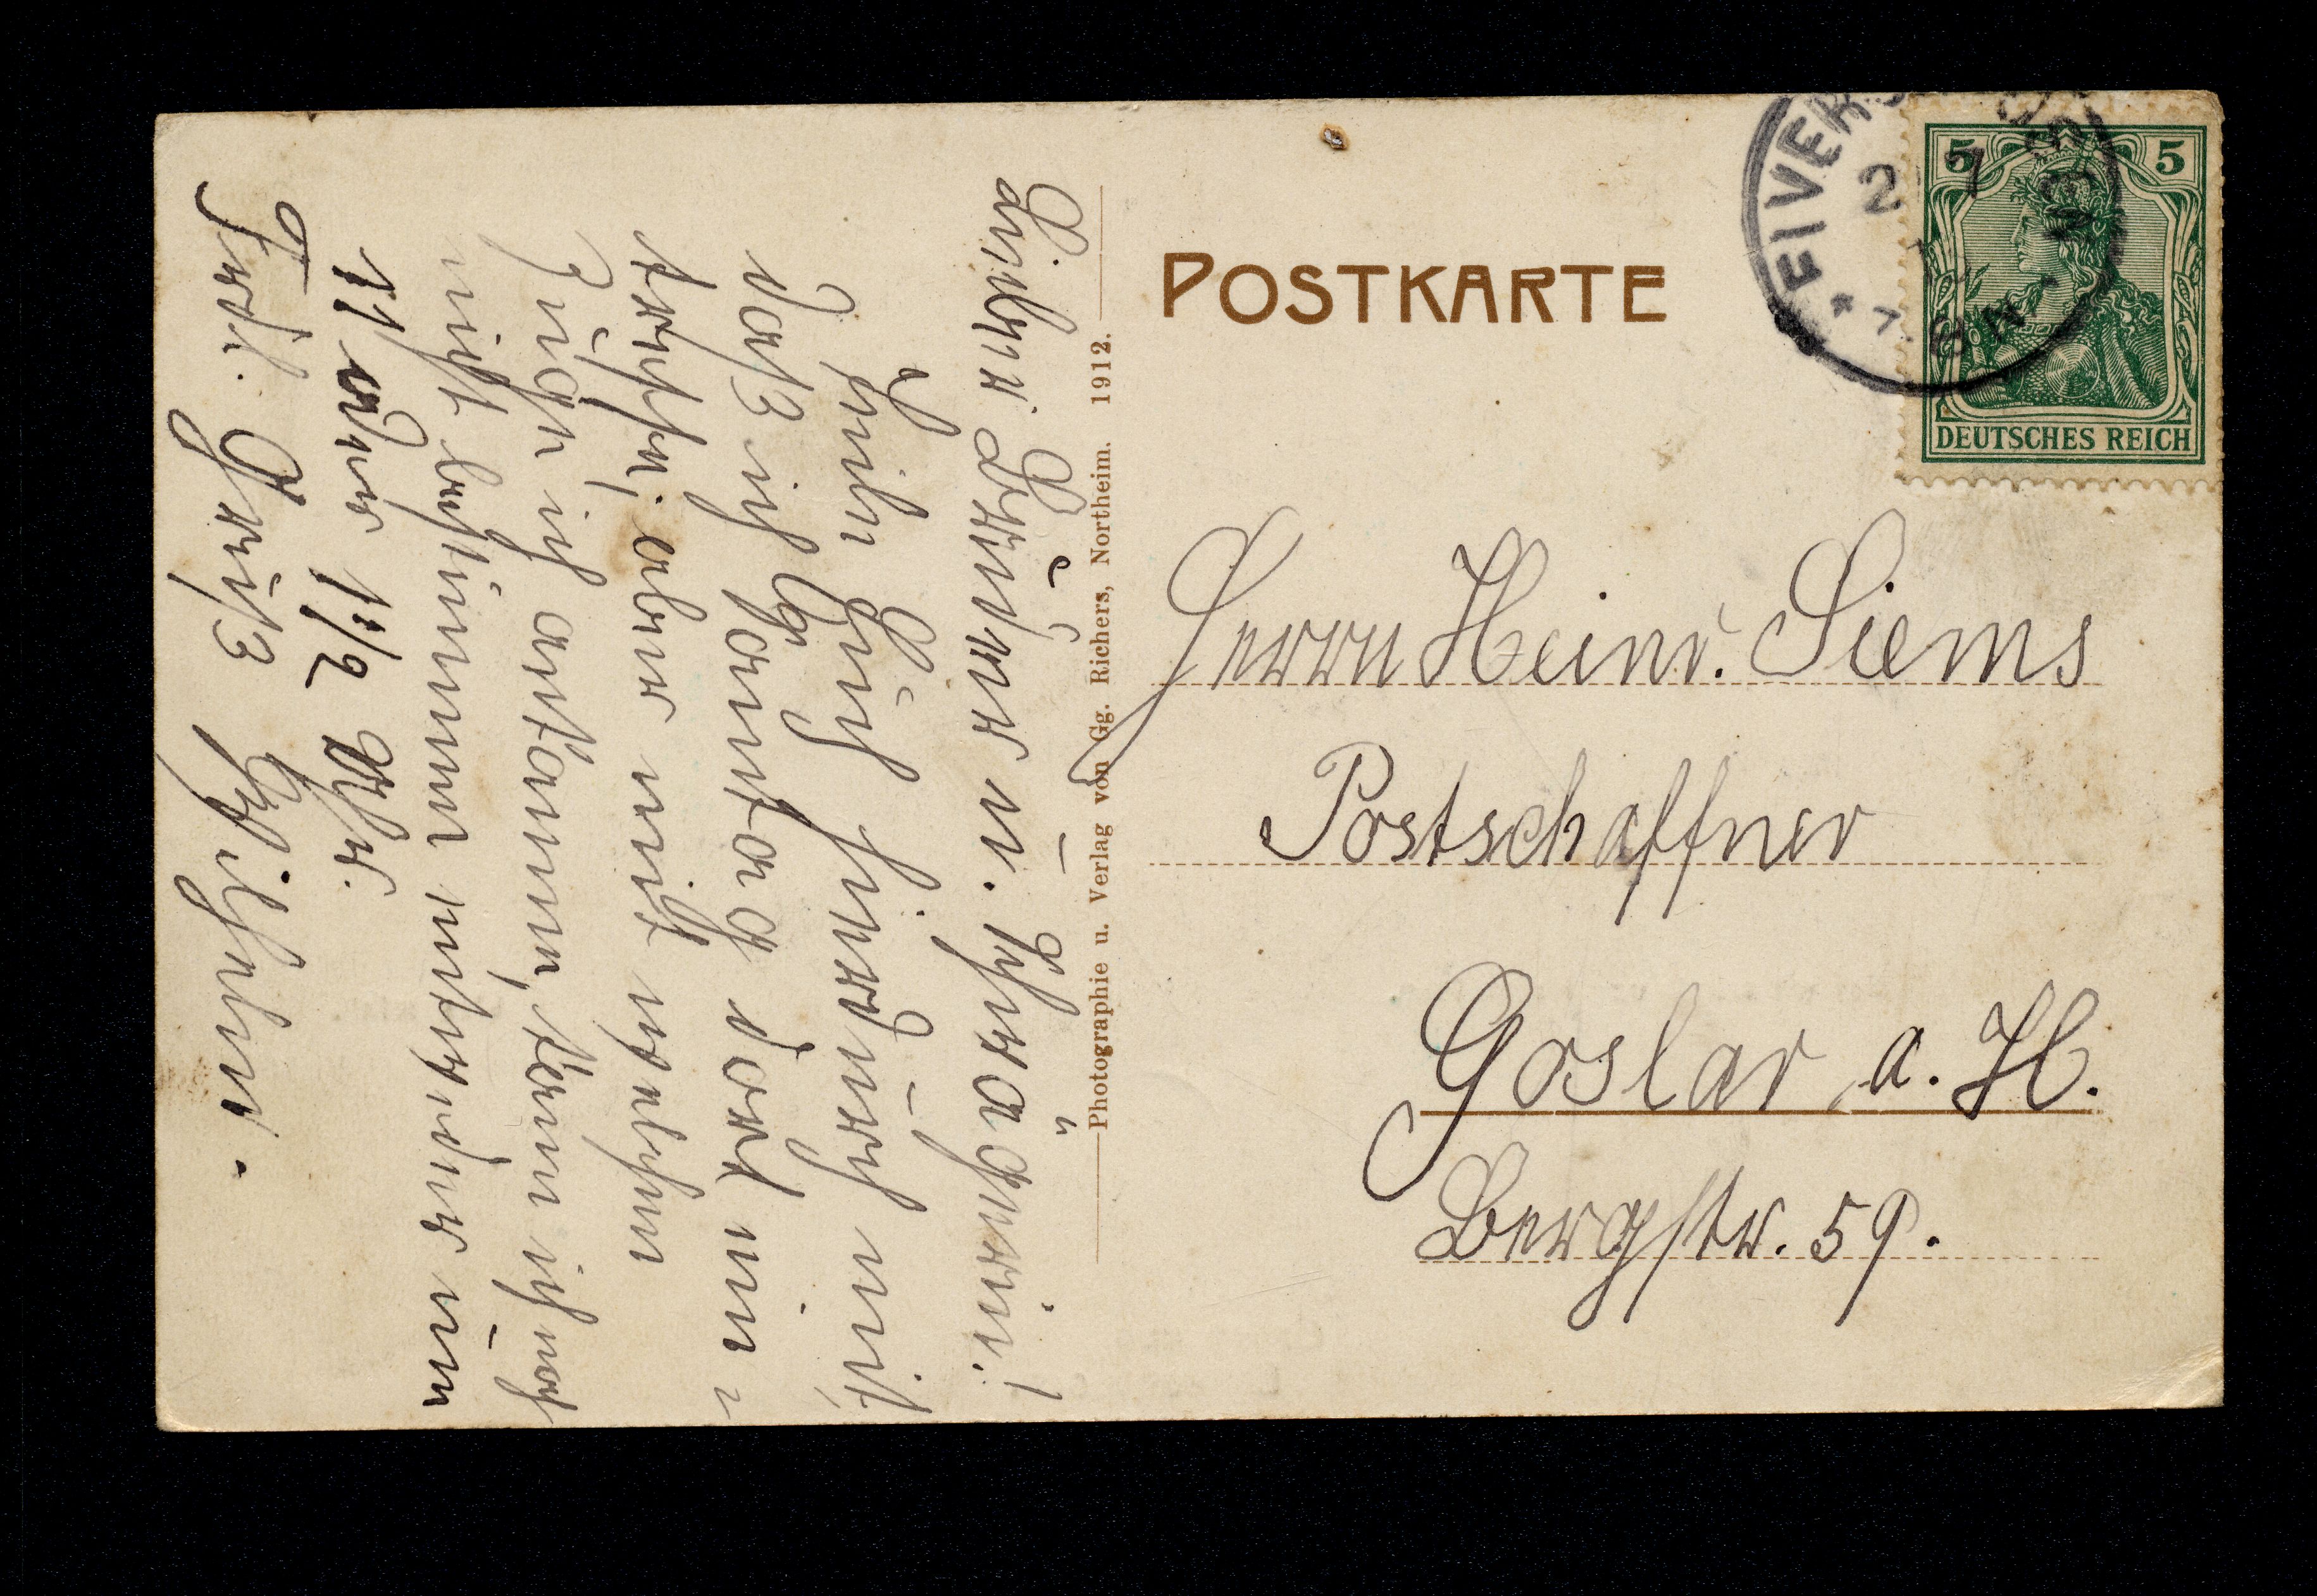 POSTKARTE
5 5
DEUTSCHES REICH
2 7
Herrn Heinr. Siems
Postschaffner
Goslar a. H.
Bergstr. 59.
Photographie u. Verlag von Gg. Richers, Northeim. 1912.
Lieber Bruder u. Schwägerin!
Teile Euch hierdurch mit,
daß ich Sonntag dort ein-
treffe; aber mit welchem
Zuge ich ankomme, kann ich noch
nicht bestimmen entweder um
11 oder 1 1/2 Uhr.
Frdl. Gruß